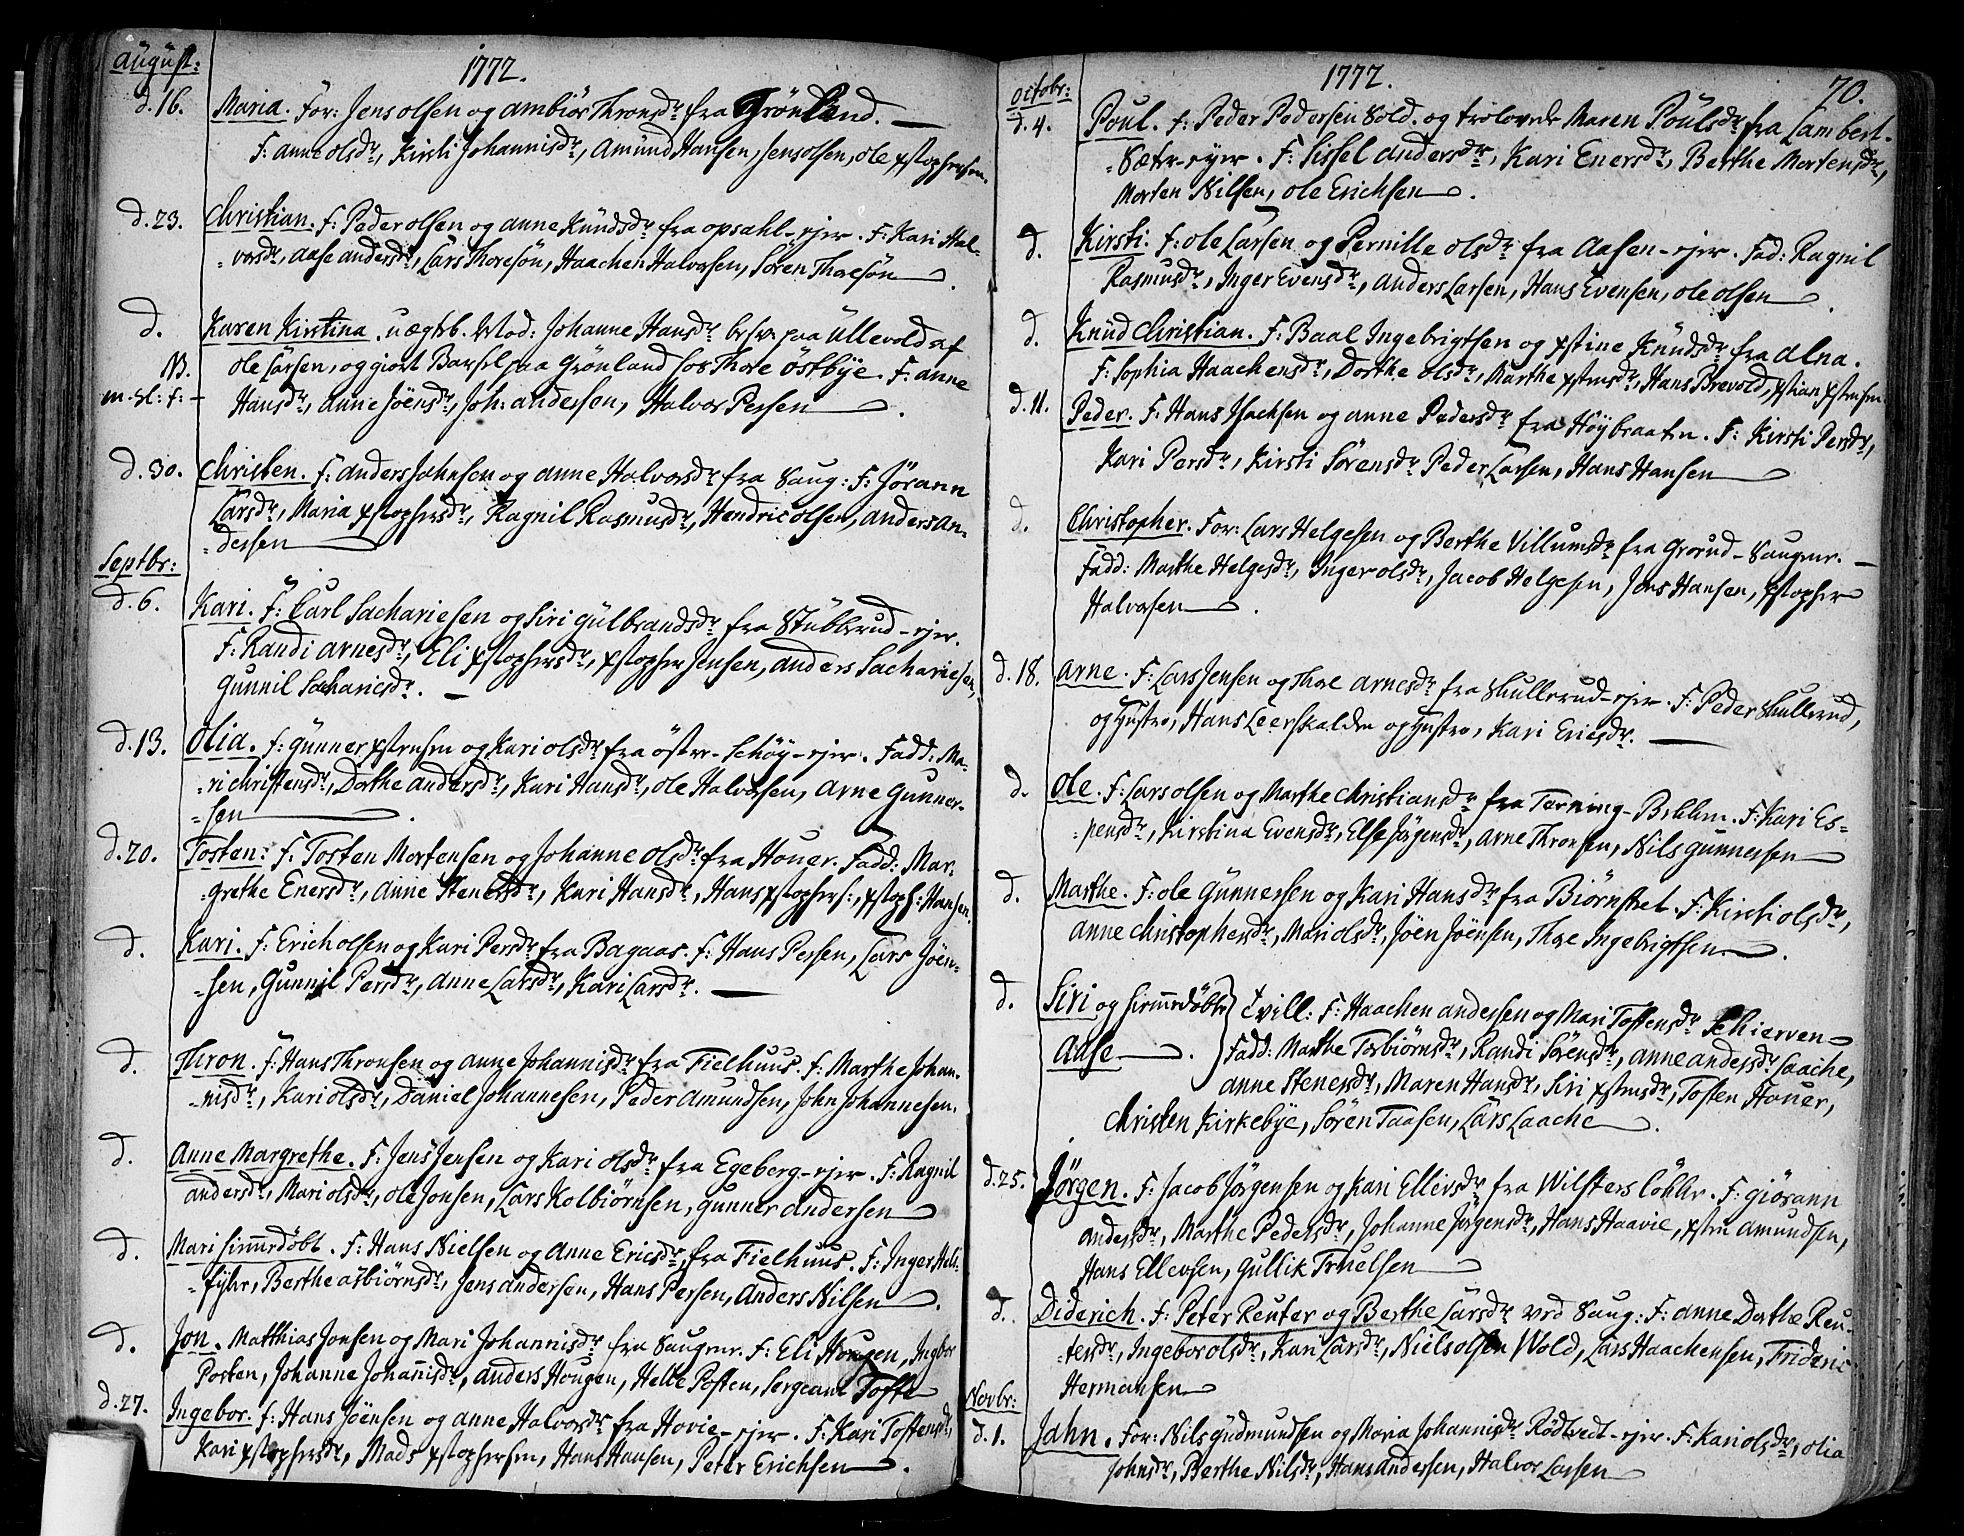 august:
1772.
d. 16. Maria. For: Jens olsen og ambiør Thronsdr fra Grönland. —
F: anne olsdr, Kirsti Johannisdr, Amund Hansen, Jens olsen, ole xstophersen.
d. 23. Christian. F: Peder olsen og anne Knüdsdr fra opsahl-ejer. F: Kari Hal-
-vorsdr, aase andersdr, Lars Thoresön, Haachen Halvorsen, Sören Thoresön.
d. Karen Kirstina. uægtb. Mod: Johanne Hansdr besv: paa Üllevold af
NB. ole Larsen, og giort Barsel paa Grönland hos Thore östbÿe. F: anne
m-sl: f: - Hansdr, anne Jöensdr, Joh: andersen, Halvor Persen.
d. 30. Christen. F: anders Johnsen og anne Halvorsdr fra Saug: F: Jörann
Larsdr, Maria xstophersdr, Ragnil Rasmusdr, Hendric olsen, anders an-
-dersen
Septbr:
d. 6. Kari. F: Carl Sachariesen og Siri gülbrandsdr fra Stübberud-ejer.
F: Randi arnesdr, Eli xstophersdr, xstopher Jensen, anders Sachariesen,
Gunnil Sachariesdr. —
d. 13. olia. f: günner xstensen og Kari olsdr fra östre-Schöy-ejer. Fadd: Ma-
-ri christensdr, Dorthe andersdr, Kari Hansdr, ole Halvorsen, arne gunner-
-sen.
d. 20. Tosten: f: Tosten Mortensen og Johanne olsdr fra Houer. Fadd: Mar-
grethe Enersdr, anne Stenersdr, Kari Hansdr, Hans xstophers:, xstoph: Hansen.
d. Kari. F: Erich olsen og Kari Persdr fra Bagaas. f: Hans Persen, Lars Jöen-
-sen, Gunnil Persdr, anne Larsdr, Kari Larsdr. —
d. Thron. f: Hans Thronsen og anne Johannisdr fra Tielhuus. f: Marthe Johan-
-nisdr, Kari olsdr, Daniel Johannesen, Peder amundsen, John Johannesen.
d. Anne Margrethe. F: Jens Jensen og Kari olsdr fra Egeberg-ejer. F: Ragnil
andersdr, Mari olsdr, ole Jonsen, Lars Kolbiörnsen, gunner andersen
d. Mari hiemmedöbt. F: Hans Nielsen og Anne Ericsdr fra Tielhuus. F: Inger
Berthe asbiörnsdr, Jens andersen, Hans Persen, Anders Nilsen.
d. Jon. Matthias Jonsen og Mari Johannisdr fra Saugner. f: Eli Hougen, Ingbor
Posten, Johanne Johannisdr, anders Hougen, Helte Posten, Sergeant Toffte
d. 27. Ingebor. f: Hans Jöensen og anne Halvorsdr fra Hovie-ejer. F: Kari Tostensdr,
Kari xstophersdr, Mads xstophersen, Hans Hansen, Peter Erichsen.
octobr:
1772.
70.
d. 4. Poul. f: Peder Pedersen Sold. og trolovede Maren Poulsdr fra Lambert-
-Sæter-ejer. F: Sissel andersdr, Kari Enersdr, Berthe Mortensdr,
Morten Nilsen, ole Erichsen.
d. Kirsti: f: ole Larsen og Pernille olsdr fra Aasen-ejer. Fad: Ragnil
Rasmusdr, Inger Evensdr, anders Larsen, Hans Evensen, ole olsen.
d. Knüd Christian. F: Baal Ingebrigtsen og xstine Knüdsdr fra alna.
F: Sophia Haachensdr, Dorthe olsdr, Marthe xstensdr, Hans Brevold, xstian xstensen
d. 11. Peder. F: Hans Isachsen og anne Pedersdr fra Höÿbraaten. F: Kirsti Persdr,
Kari Persdr, Kirsti Sörensdr, Peder Larsen, Hans Hansen
d. Christopher. For: Lars Helgesen og Berthe Villumsdr fra Grorud-Saugner. —
Fadd: Marthe Helgesdr, Inger olsdr, Jacob Helgesen, Jens Hansen, xstopher
Halvorsen.
d. 18. arne. F: Lars Jensen og Thore arnesdr fra Skullerud-ejer. F: Peder Skullerud,
og hustro, Hans Leerskalden og hustro, Kari Ericsdr. —
d. ole. F: Lars olsen og Marthe christiansdr fra Terning-Bekken. F: Kari Es-
-pensdr, Kirstina Evensdr, Else Jörgensdr, arne Thronsen, Nils gunnersen
d. Marthe. F: ole Günnersen og Kari Hansdr fra Biörnstet. F: Kirsti olsdr,
anne christophersdr, Mari olsdr, Jöen Jöensen, Thore Ingebrigtsen.
d. Siri og hiemmedöbte } tvill: F: Haachen andersen og Mari Tostensdr Schierven
Aase. Fadd: Marthe Torbiörnsdr, Randi Sörensdr, anne andersdr Laache,
anne Stenersdr, Maren Hansdr, Siri xstensdr, Tosten Houer,
Christen Kirkebÿe, Sören Taasen, Lars Laache.
d. 25. Jörgen. F: Jacob Jörgensen og Kari Ellevsdr fra Wilsters Lökke. F: giörann
andersdr, Marthe Pedersdr, Johanne Jörgensdr, Hans Haavie, xsten amundsen,
Hans Ellevsen, Gullik Truelsen
d. Diderich. f: Peter Reuter og Berthe Larsdr ved Saug: F: anne Dorthe Reu-
-tersdr, Ingebor olsdr, Kari Larsdr, Niels olsen Wold, Lars Haachensen, Frideric
Hermansen
Novbr:
d. 1. Jahn. For: Nils güdmundsen og Maria Johannisdr Rödtvedt-ejer. F: Kari olsdr, olia
Johnsdr, Berthe Nilsdr, Hans andersen, Halvor Larsen